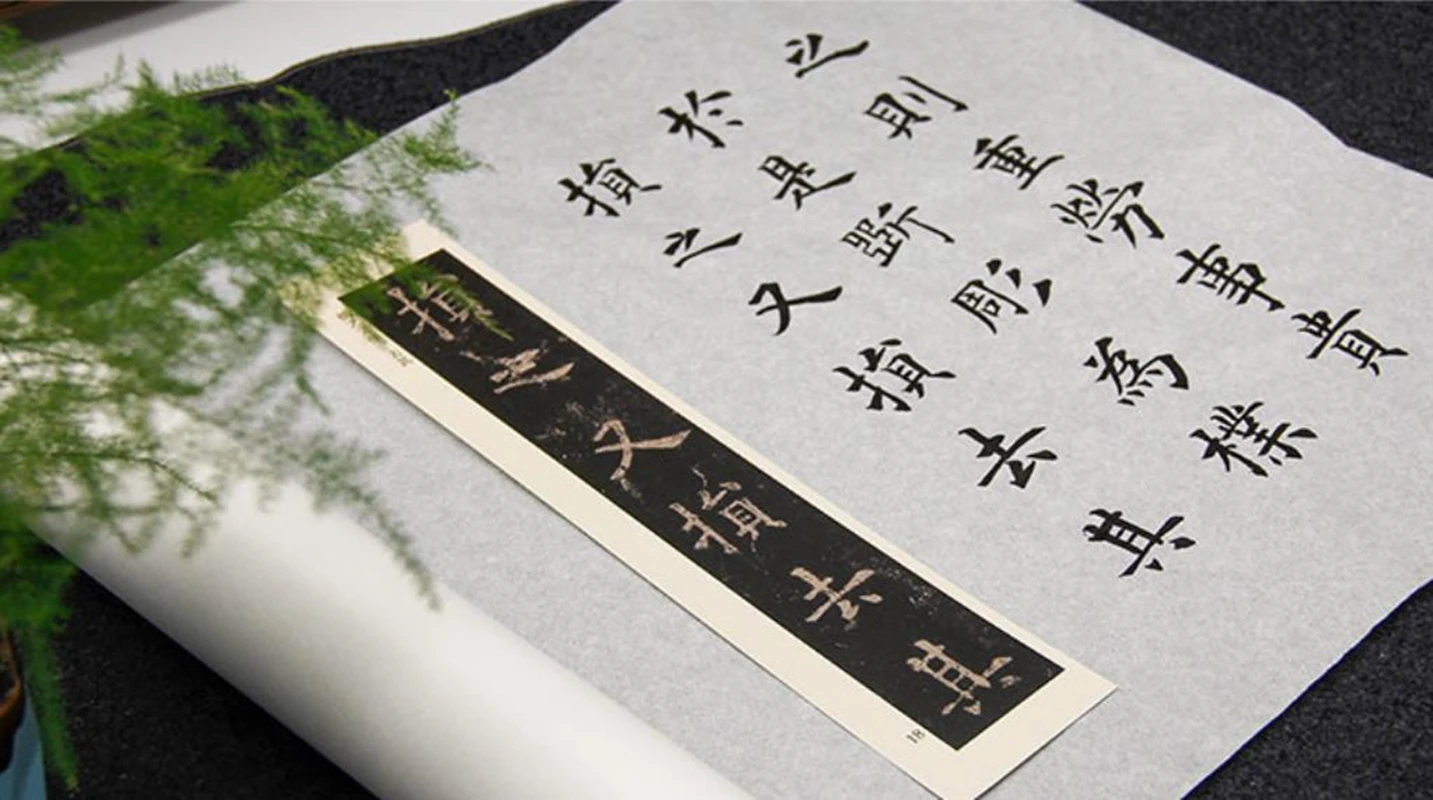 之則重勞事貴
於是斲彫為樸
損之又損去其
損之又損去其
18